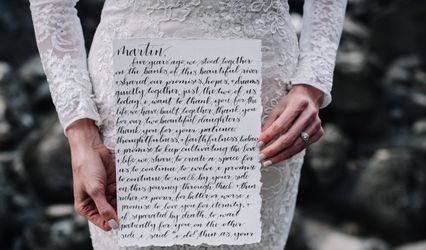 martin,
five years ago we stood together
on the banks of this beautiful river
+ shared our promises, hopes, + dreams
quietly together, just the two of us
today, i want to thank you for the
life we have built together, thank you
for our two beautiful daughters
thank you for your patience,
thoughtfulness, + faithfulness today
i promise to keep cultivating the love
+ life we share, to create a space for
us to continue to evolve. i promise
to continue to walk by your side
on this journey through thick + thin
richer or poorer, for better or worse, i
promise to love you for eternity, +
if separated by death, to wait
patiently for you on the other
side. i said "i do" then as your